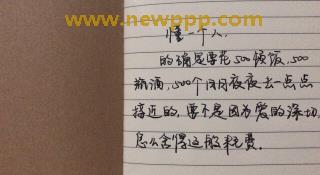 www.newppp.com
懂一个人,
的确是要花500顿饭,500
瓶酒,500个日日夜夜去一点点
接近的,要不是因为爱的深切
怎么舍得这般耗费.